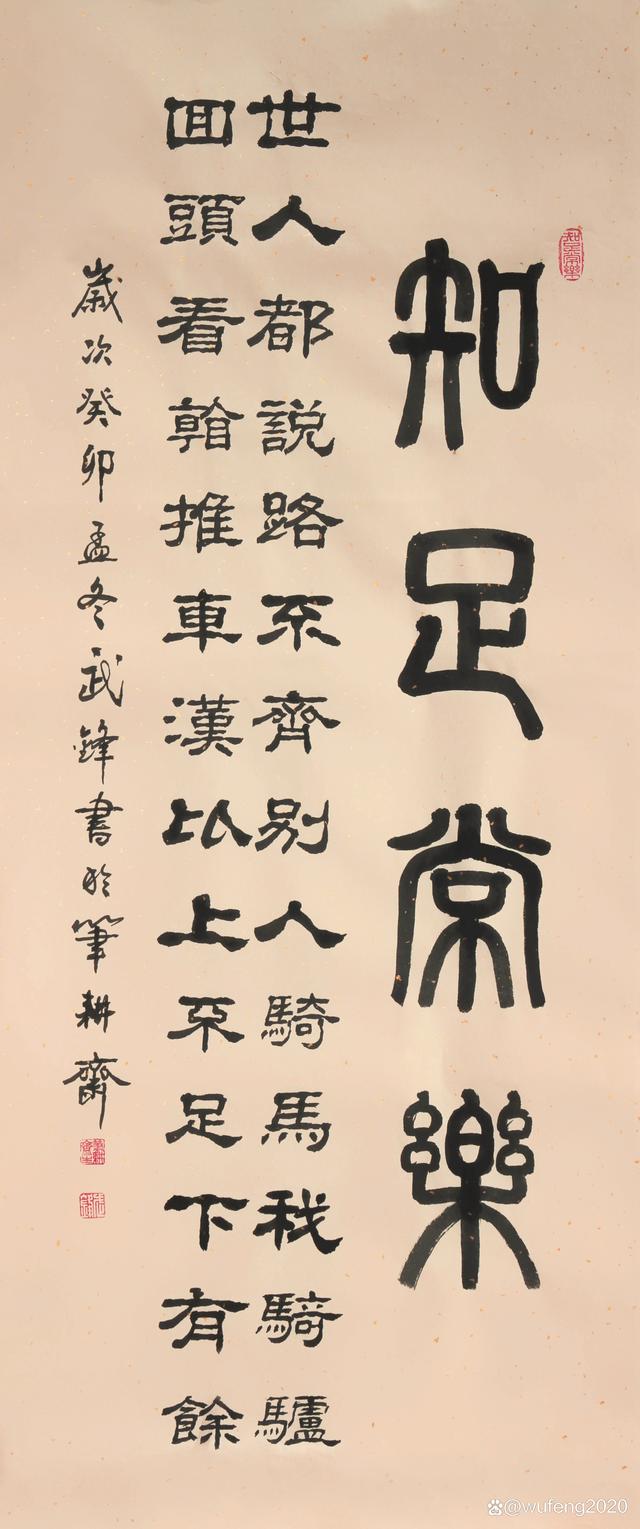 知足常樂
知足常樂
世人都說路不齊別人騎馬我騎驢
回頭看推車漢以上不足下有餘
歲次癸卯孟冬武鋒書於筆耕齋
@wufeng2020